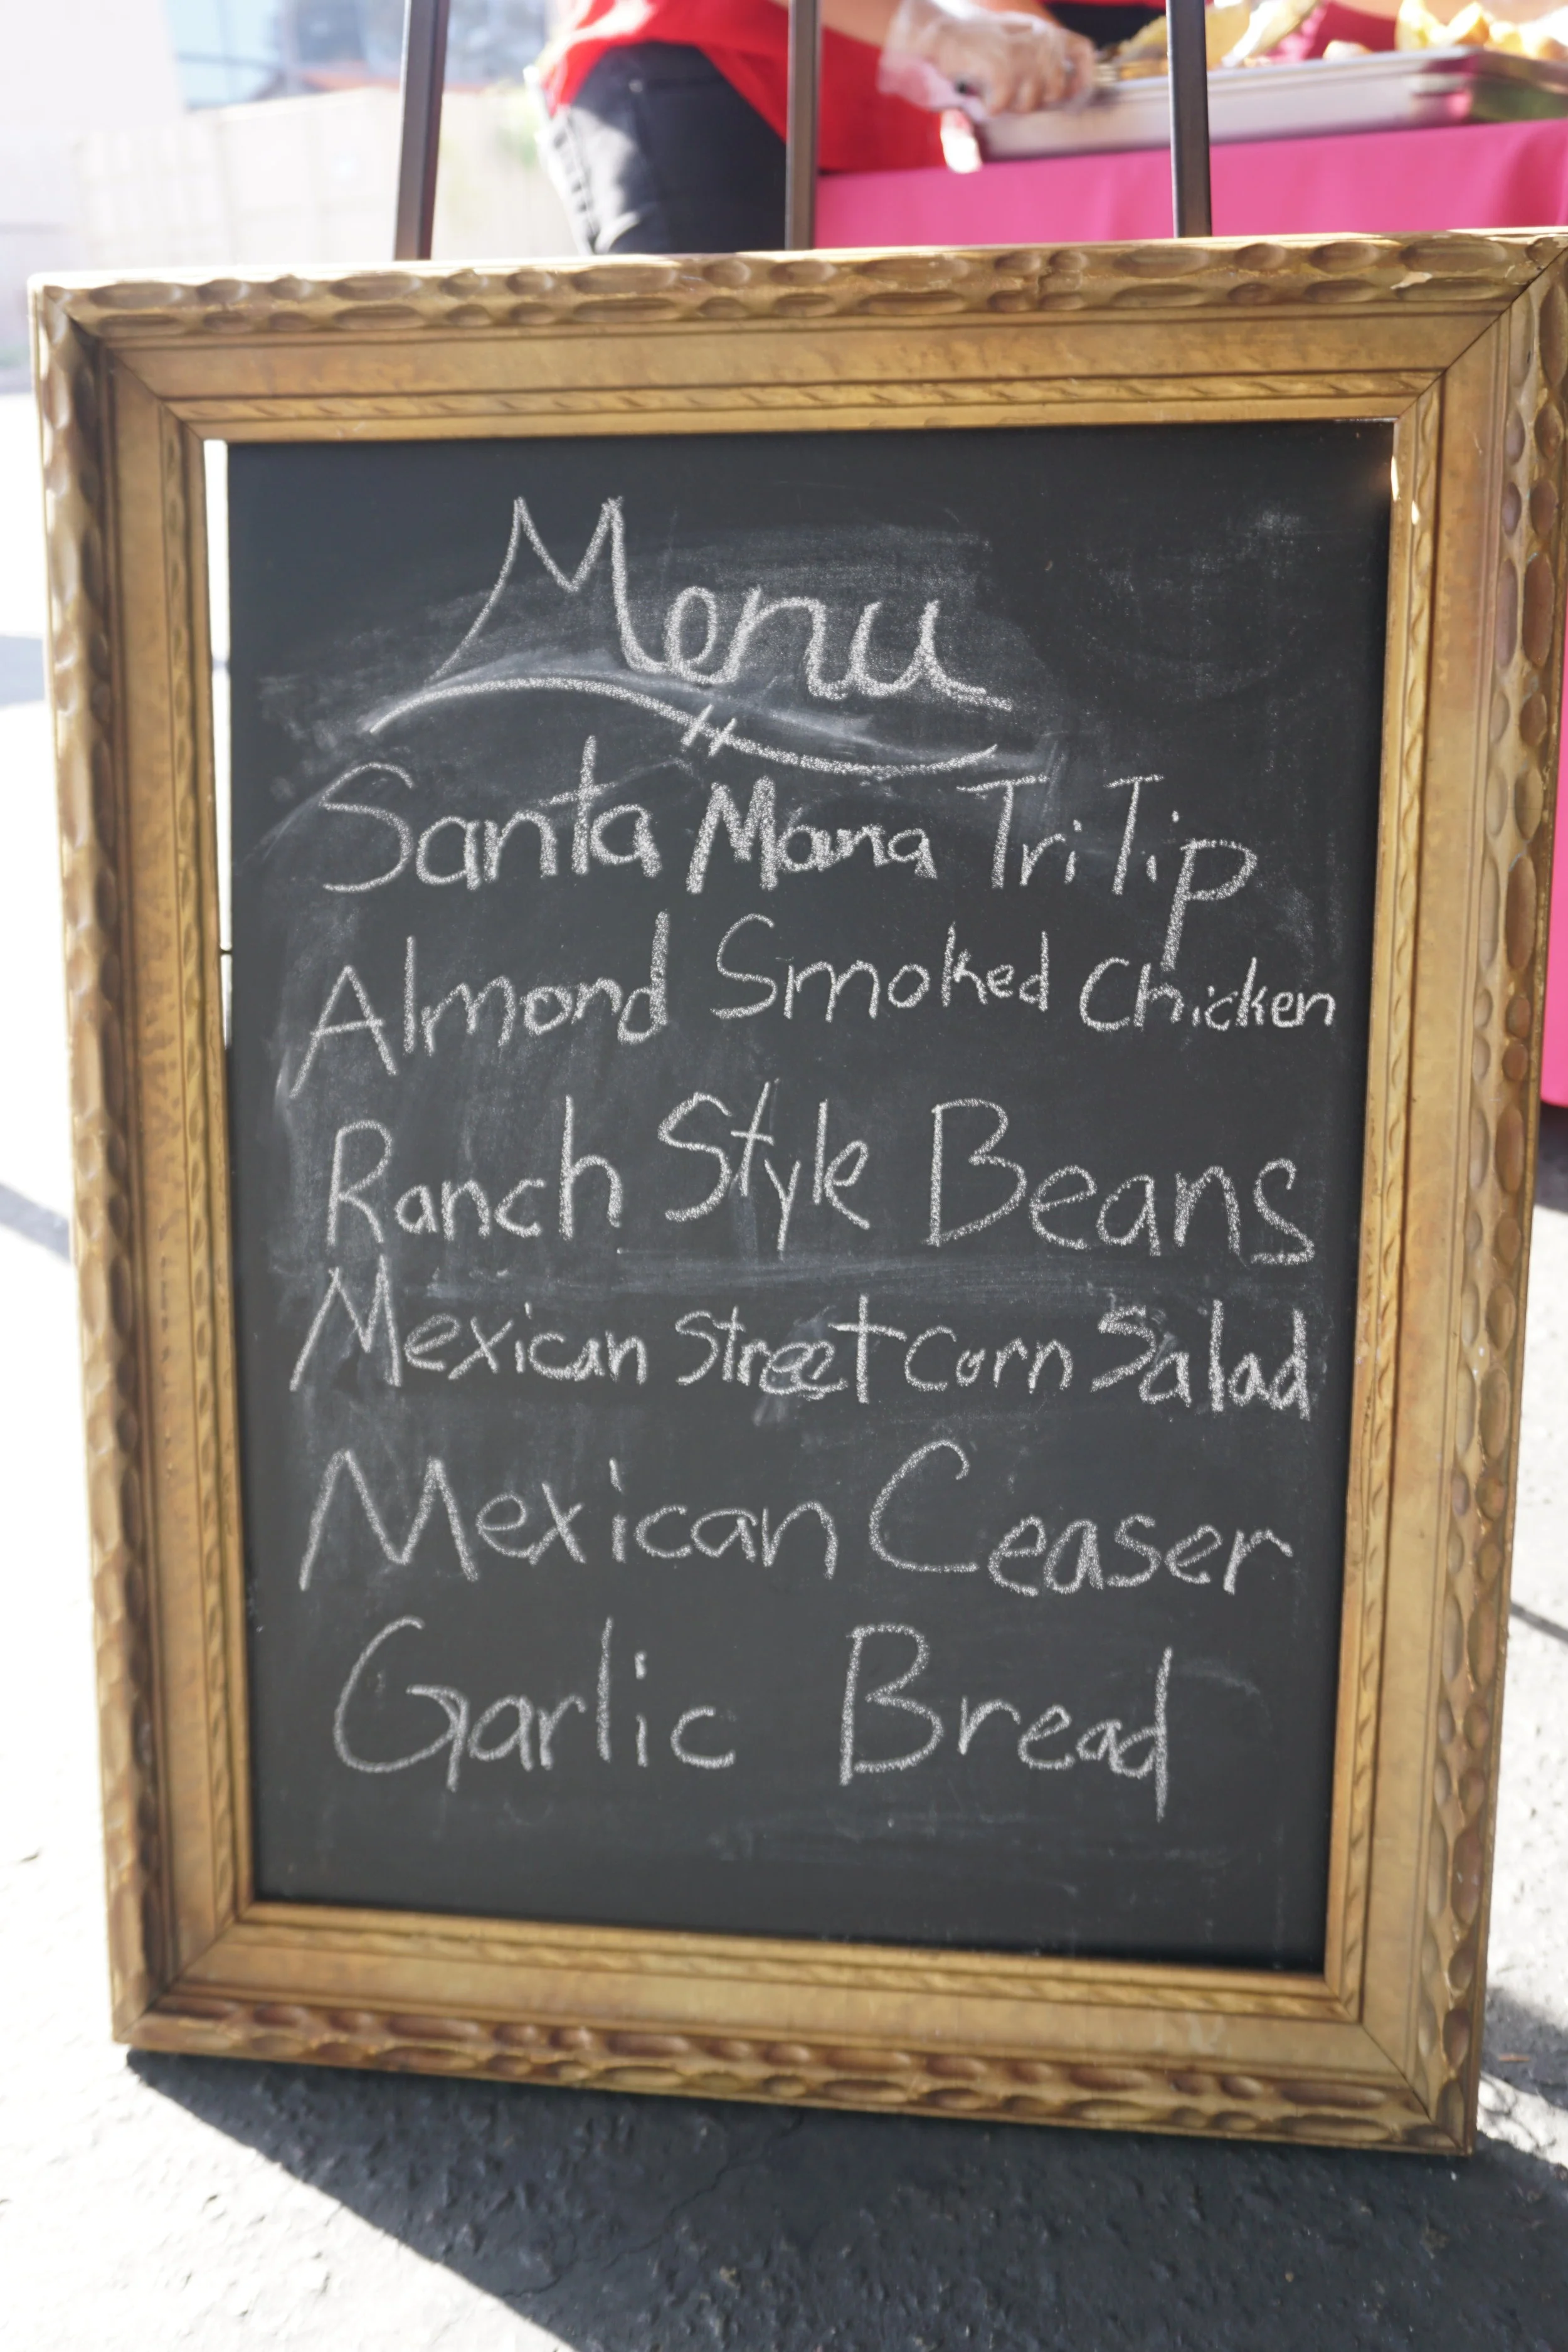 Menu
Santa Mana Tri Tip
Almond Smoked Chicken
Ranch Style Beans
Mexican Street Corn Salad
Mexican Ceaser
Garlic Bread